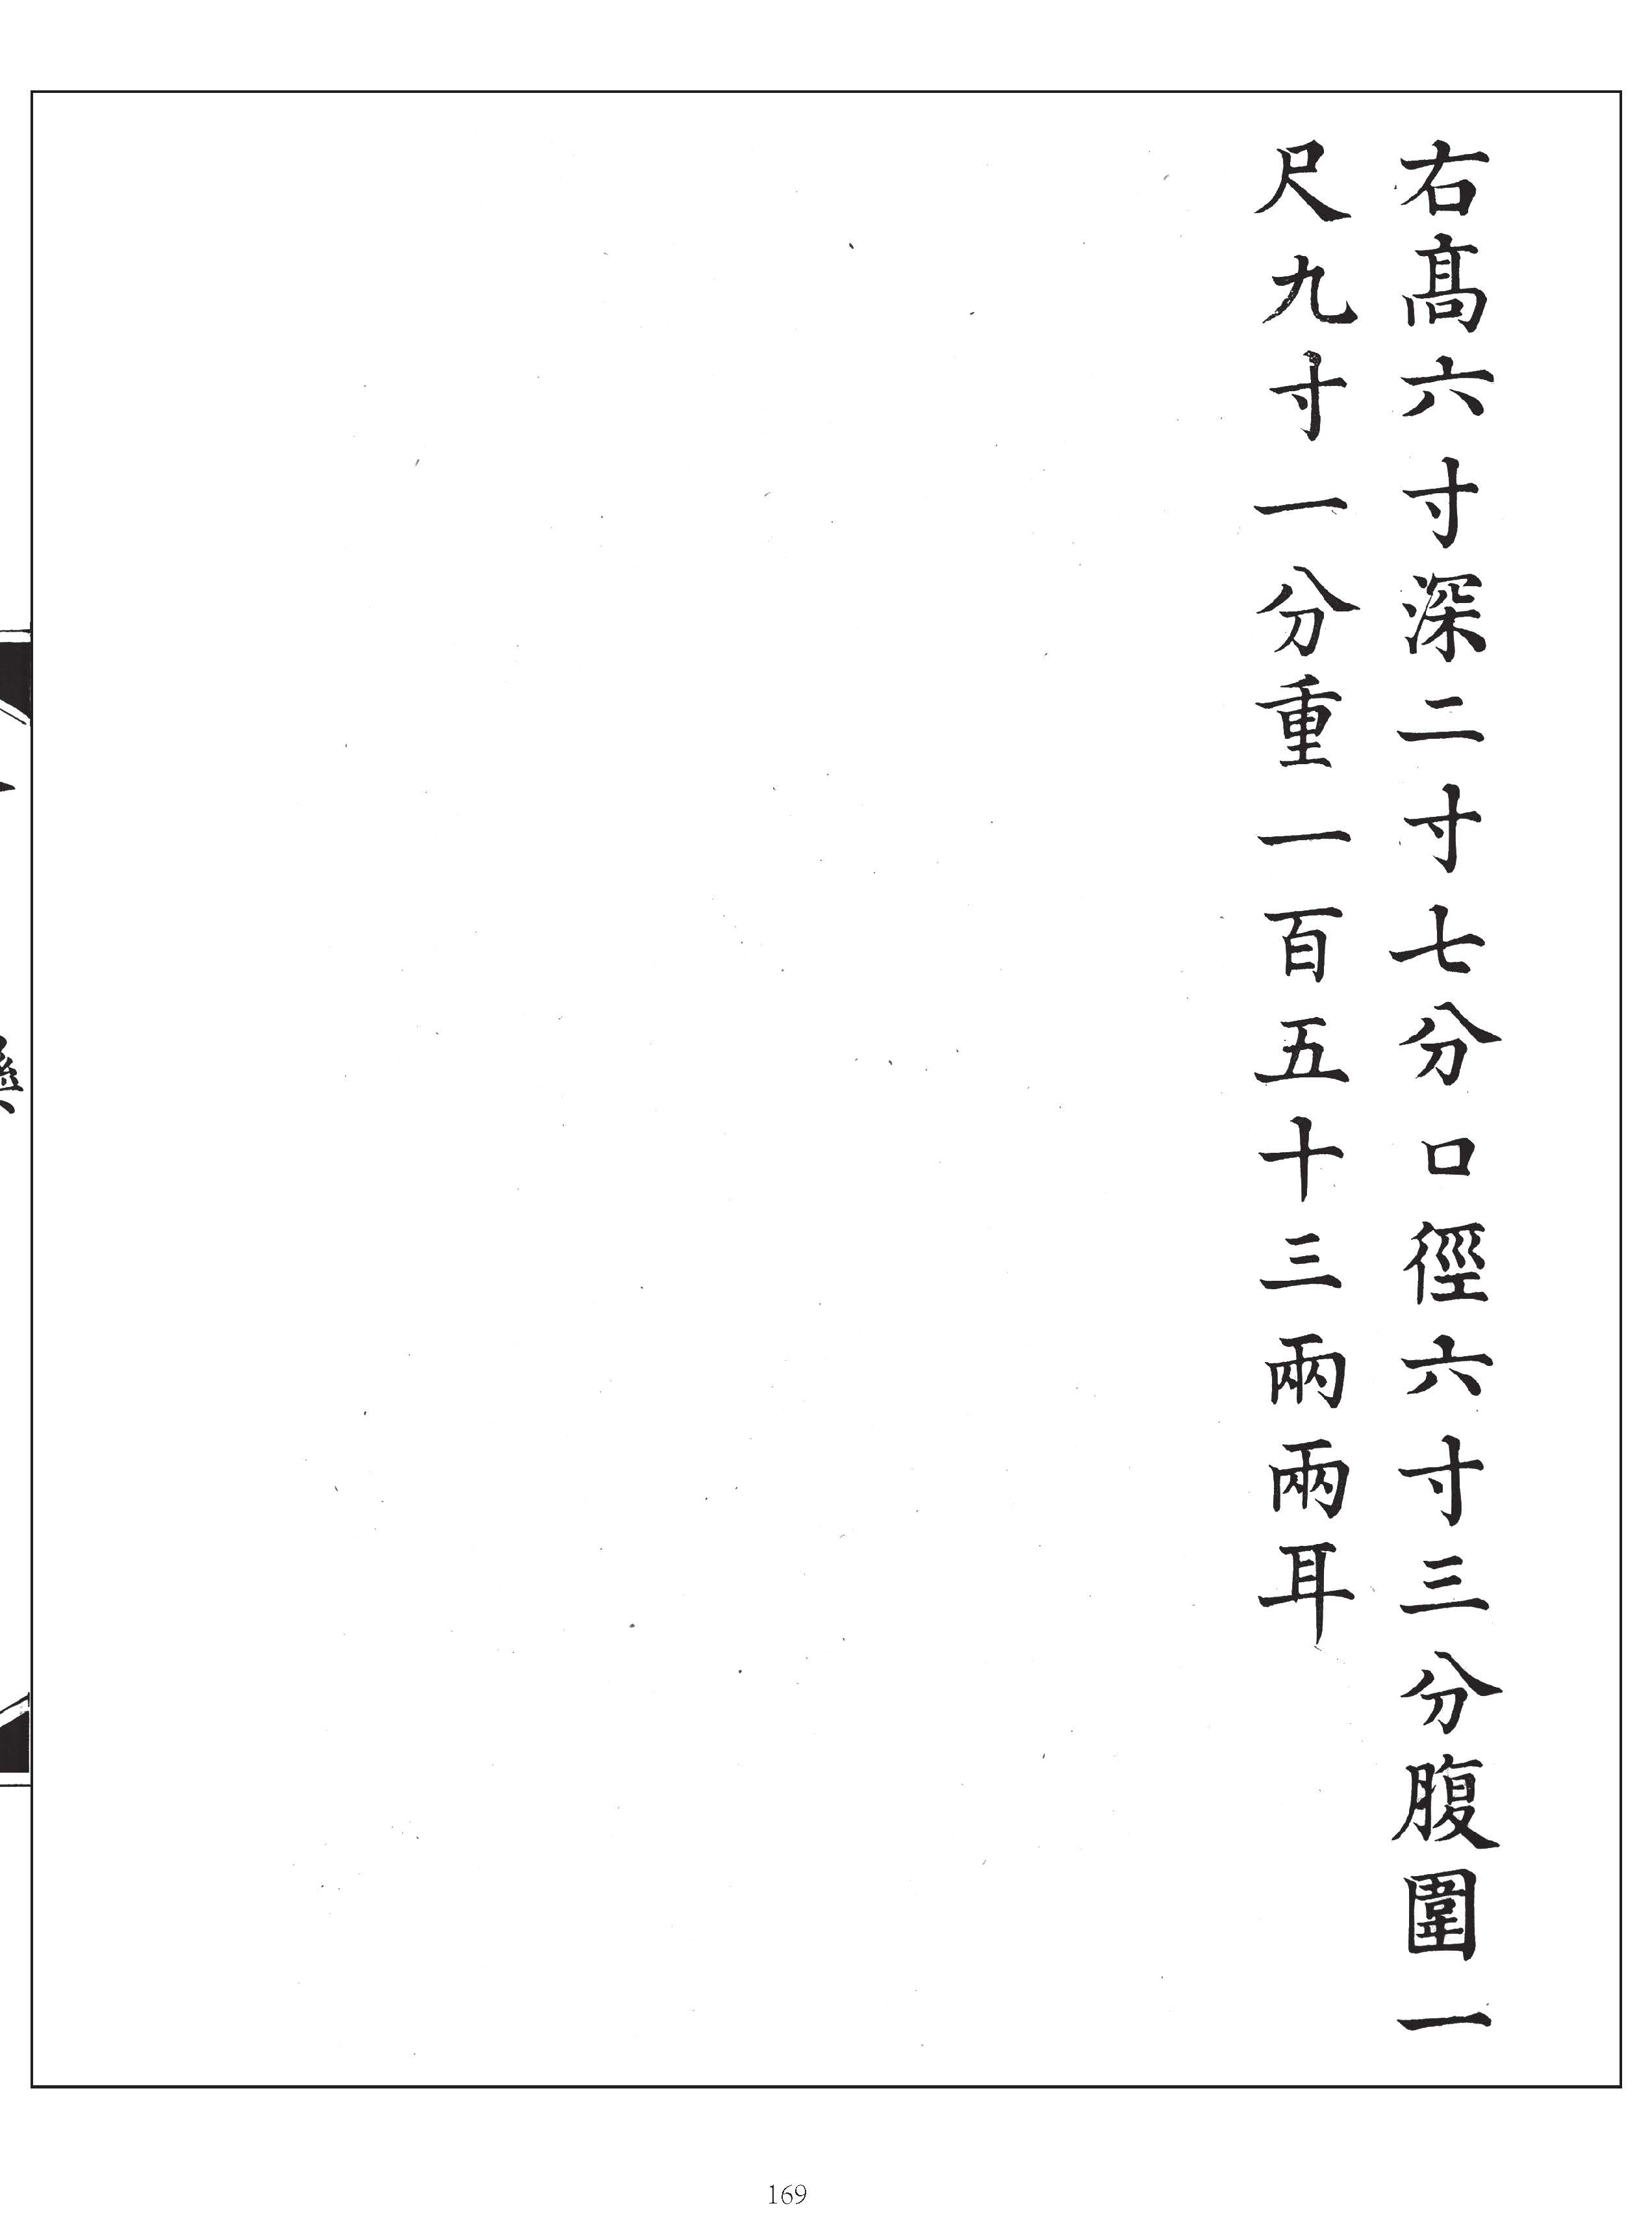 右髙六寸深二寸七分口徑六寸三分腹圍一
尺九寸一分重一百五十三兩兩耳
169